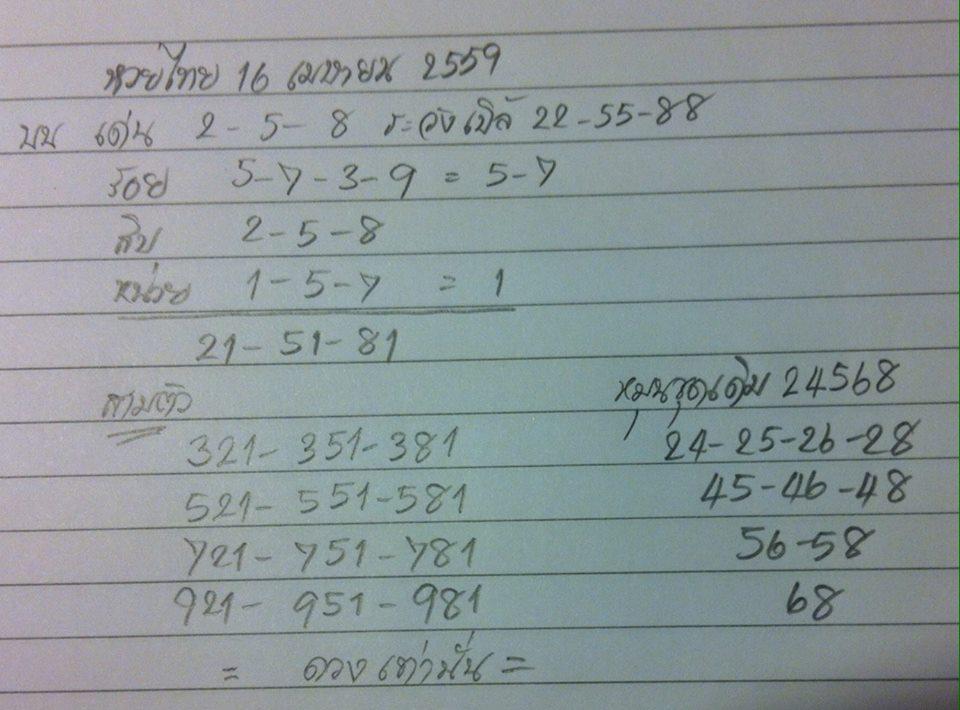 หวยไทย 16 เมษายน 2559
บน เด่น 2 - 5 - 8 ระวังเบิ้ล 22-55-88
ร้อย 5-7-3-9 = 5-7
สิบ 2-5-8
หน่วย 1-5-7 = 1
21-51-81
สามตัว
321-351-381
521-551-581
721-751-781
921-951-981
หมุนชุดเดิม 24568
24-25-26-28
45-46-48
56-58
68
= ดวงเท่านั่น =